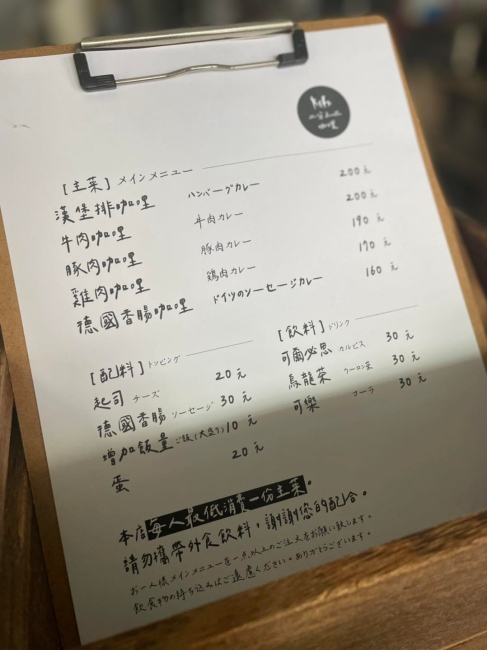 [主菜] メインメニュー
漢堡排咖哩 ハンバーグカレー 200元
牛肉咖哩 牛肉カレー 200元
豚肉咖哩 豚肉カレー 190元
雞肉咖哩 鶏肉カレー 190元
德國香腸咖哩 ドイツのソーセージカレー 160元
[配料] トッピング
起司 チーズ 20元
德國香腸 ソーセージ 30元
增加飯量 ご飯(大盛り) 10元
蛋 20元
[飲料] ドリンク
可爾必思 カルピス 30元
烏龍茶 ウーロン茶 30元
可樂 コーラ 30元
本店每人最低消費一份主菜。
請勿攜帶外食飲料,謝謝您的配合。
お一人様メインメニューを一点以上のご注文をお願い致します。
飲食物の持ち込みはご遠慮ください。ありがとうございます。